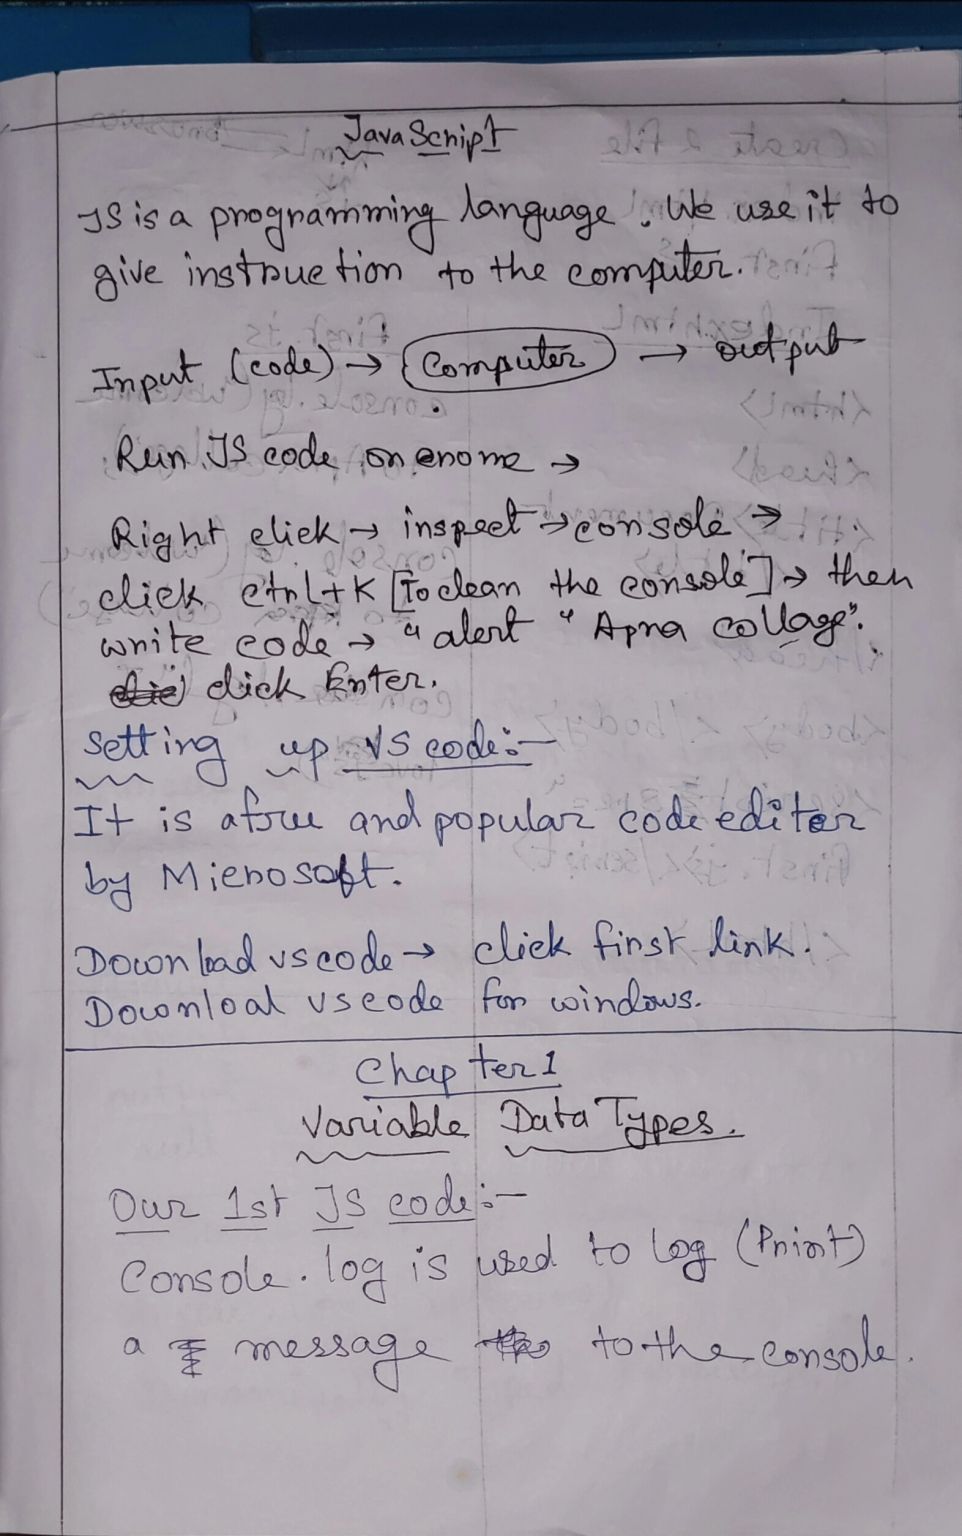 JavaScript
JS is a programming language. We use it to
give instruction to the computer.
Input (code) → (Computer) → output
Run JS code on
Right click → inspect → console →
click ctrl+K [To clean the console] → then
write code → "alert "Apna collage".
click Enter.
setting up VS code:-
It is a free and popular code editor
by Microsoft.
Download vs code → click first link.
Downloal vs code for windows.
Chapter 1
Variable Data Types.
Our 1st JS code:-
Console.log is used to log (Print)
a message to the console.